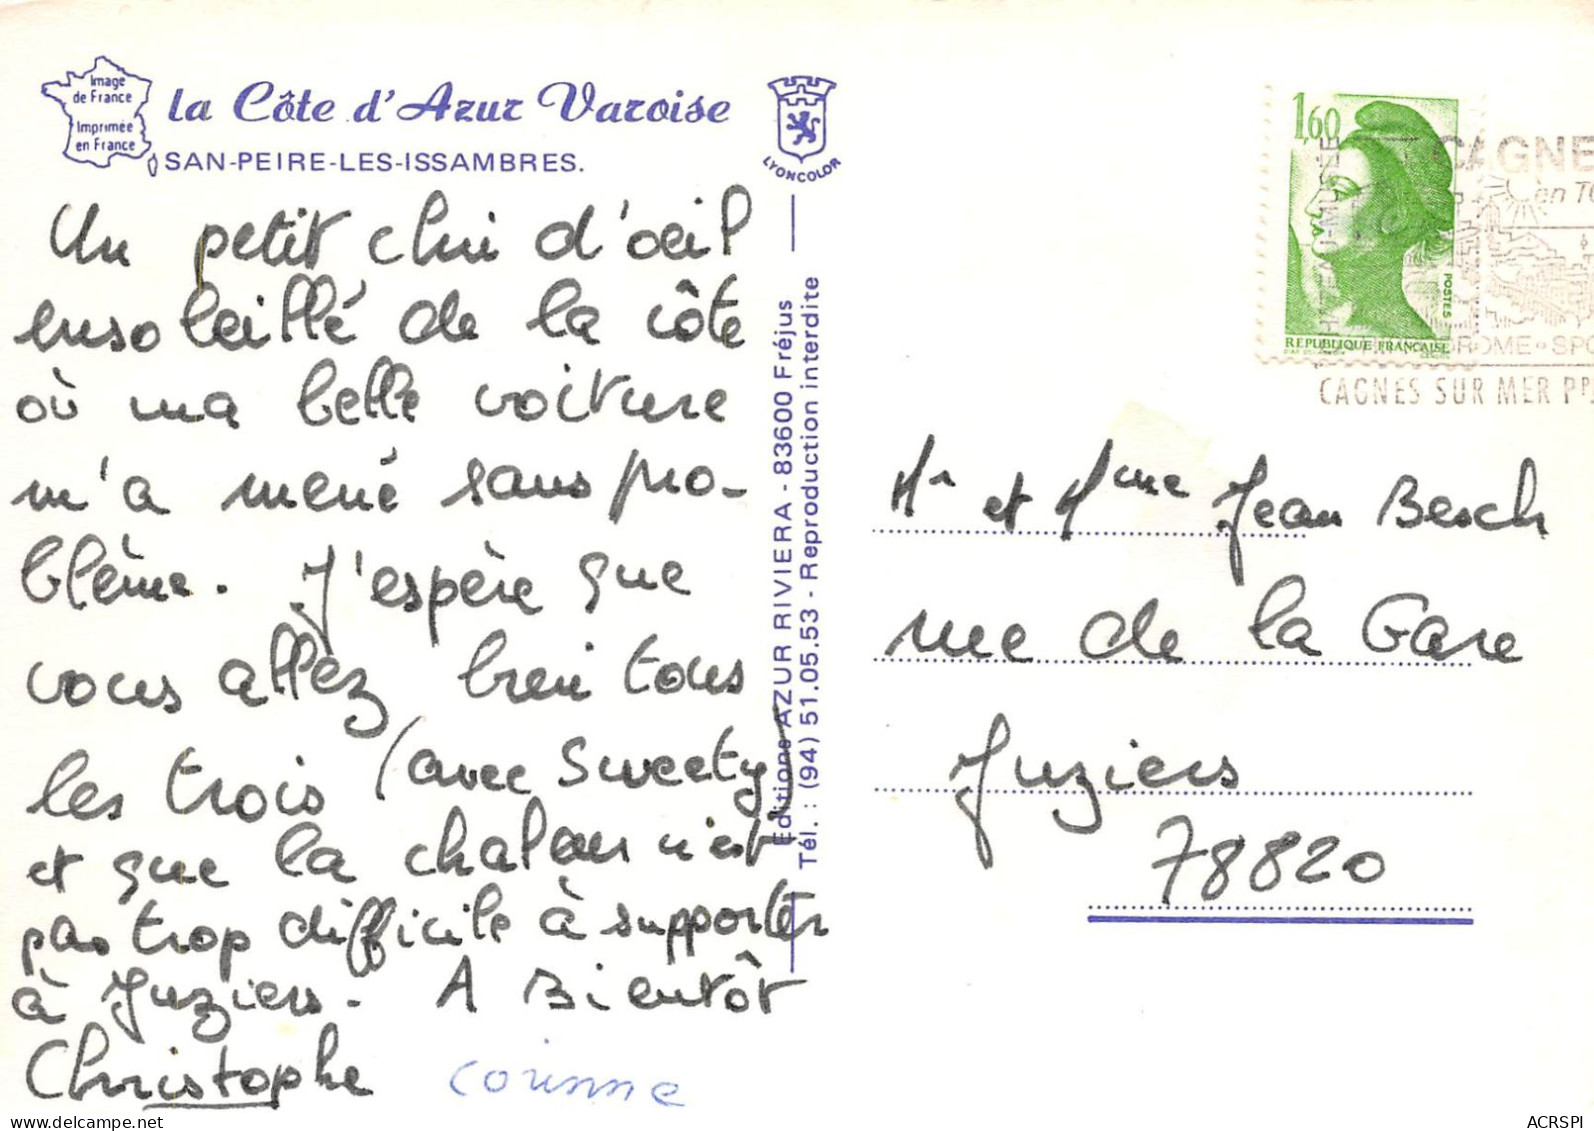 Image
de France
Imprimée
en France
la Côte d'Azur Varoise
SAN-PEIRE-LES-ISSAMBRES.
LYONCOLOR
Un petit clui d'oeil
ensoleillé de la côte
où ma belle voiture
m'a mené sans pro-
blème. J'espère que
vous allez bien tous
les trois (avec Sweety)
et que la chaleur n'est
pas trop difficile à supporter
à Juziers. A Bientôt
Christophe corinne
Editions AZUR RIVIERA - 83600 Fréjus
Tél. : (94) 51.05.53 - Reproduction interdite
1,60
POSTES
REPUBLIQUE FRANCAISE
CHATEAU-MUSÉE
CAGNE
en TO
DROME • SPO
CAGNES SUR MER PPL
Mr et Mme Jean Besch
rue de la Gare
Juziers
78820
ACRSPI